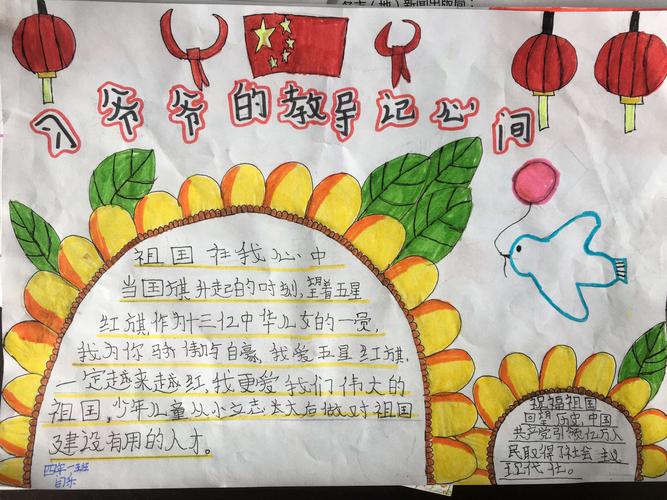 （地）新闻出版局：
习爷爷的教导记心间
祖国在我心中
当国旗升起的时刻,望着五星
红旗,作为十三亿中华儿女的一员,
我为你骄傲与自豪,我爱五星红旗.
一定越来越红,我更爱我们伟大的
祖国,少年儿童从小立志长大后做对祖国
建设有用的人才。
四年一班
祝福祖国
回望历史,中国
共产党引领亿万人
民取得了社会主义
现代化。